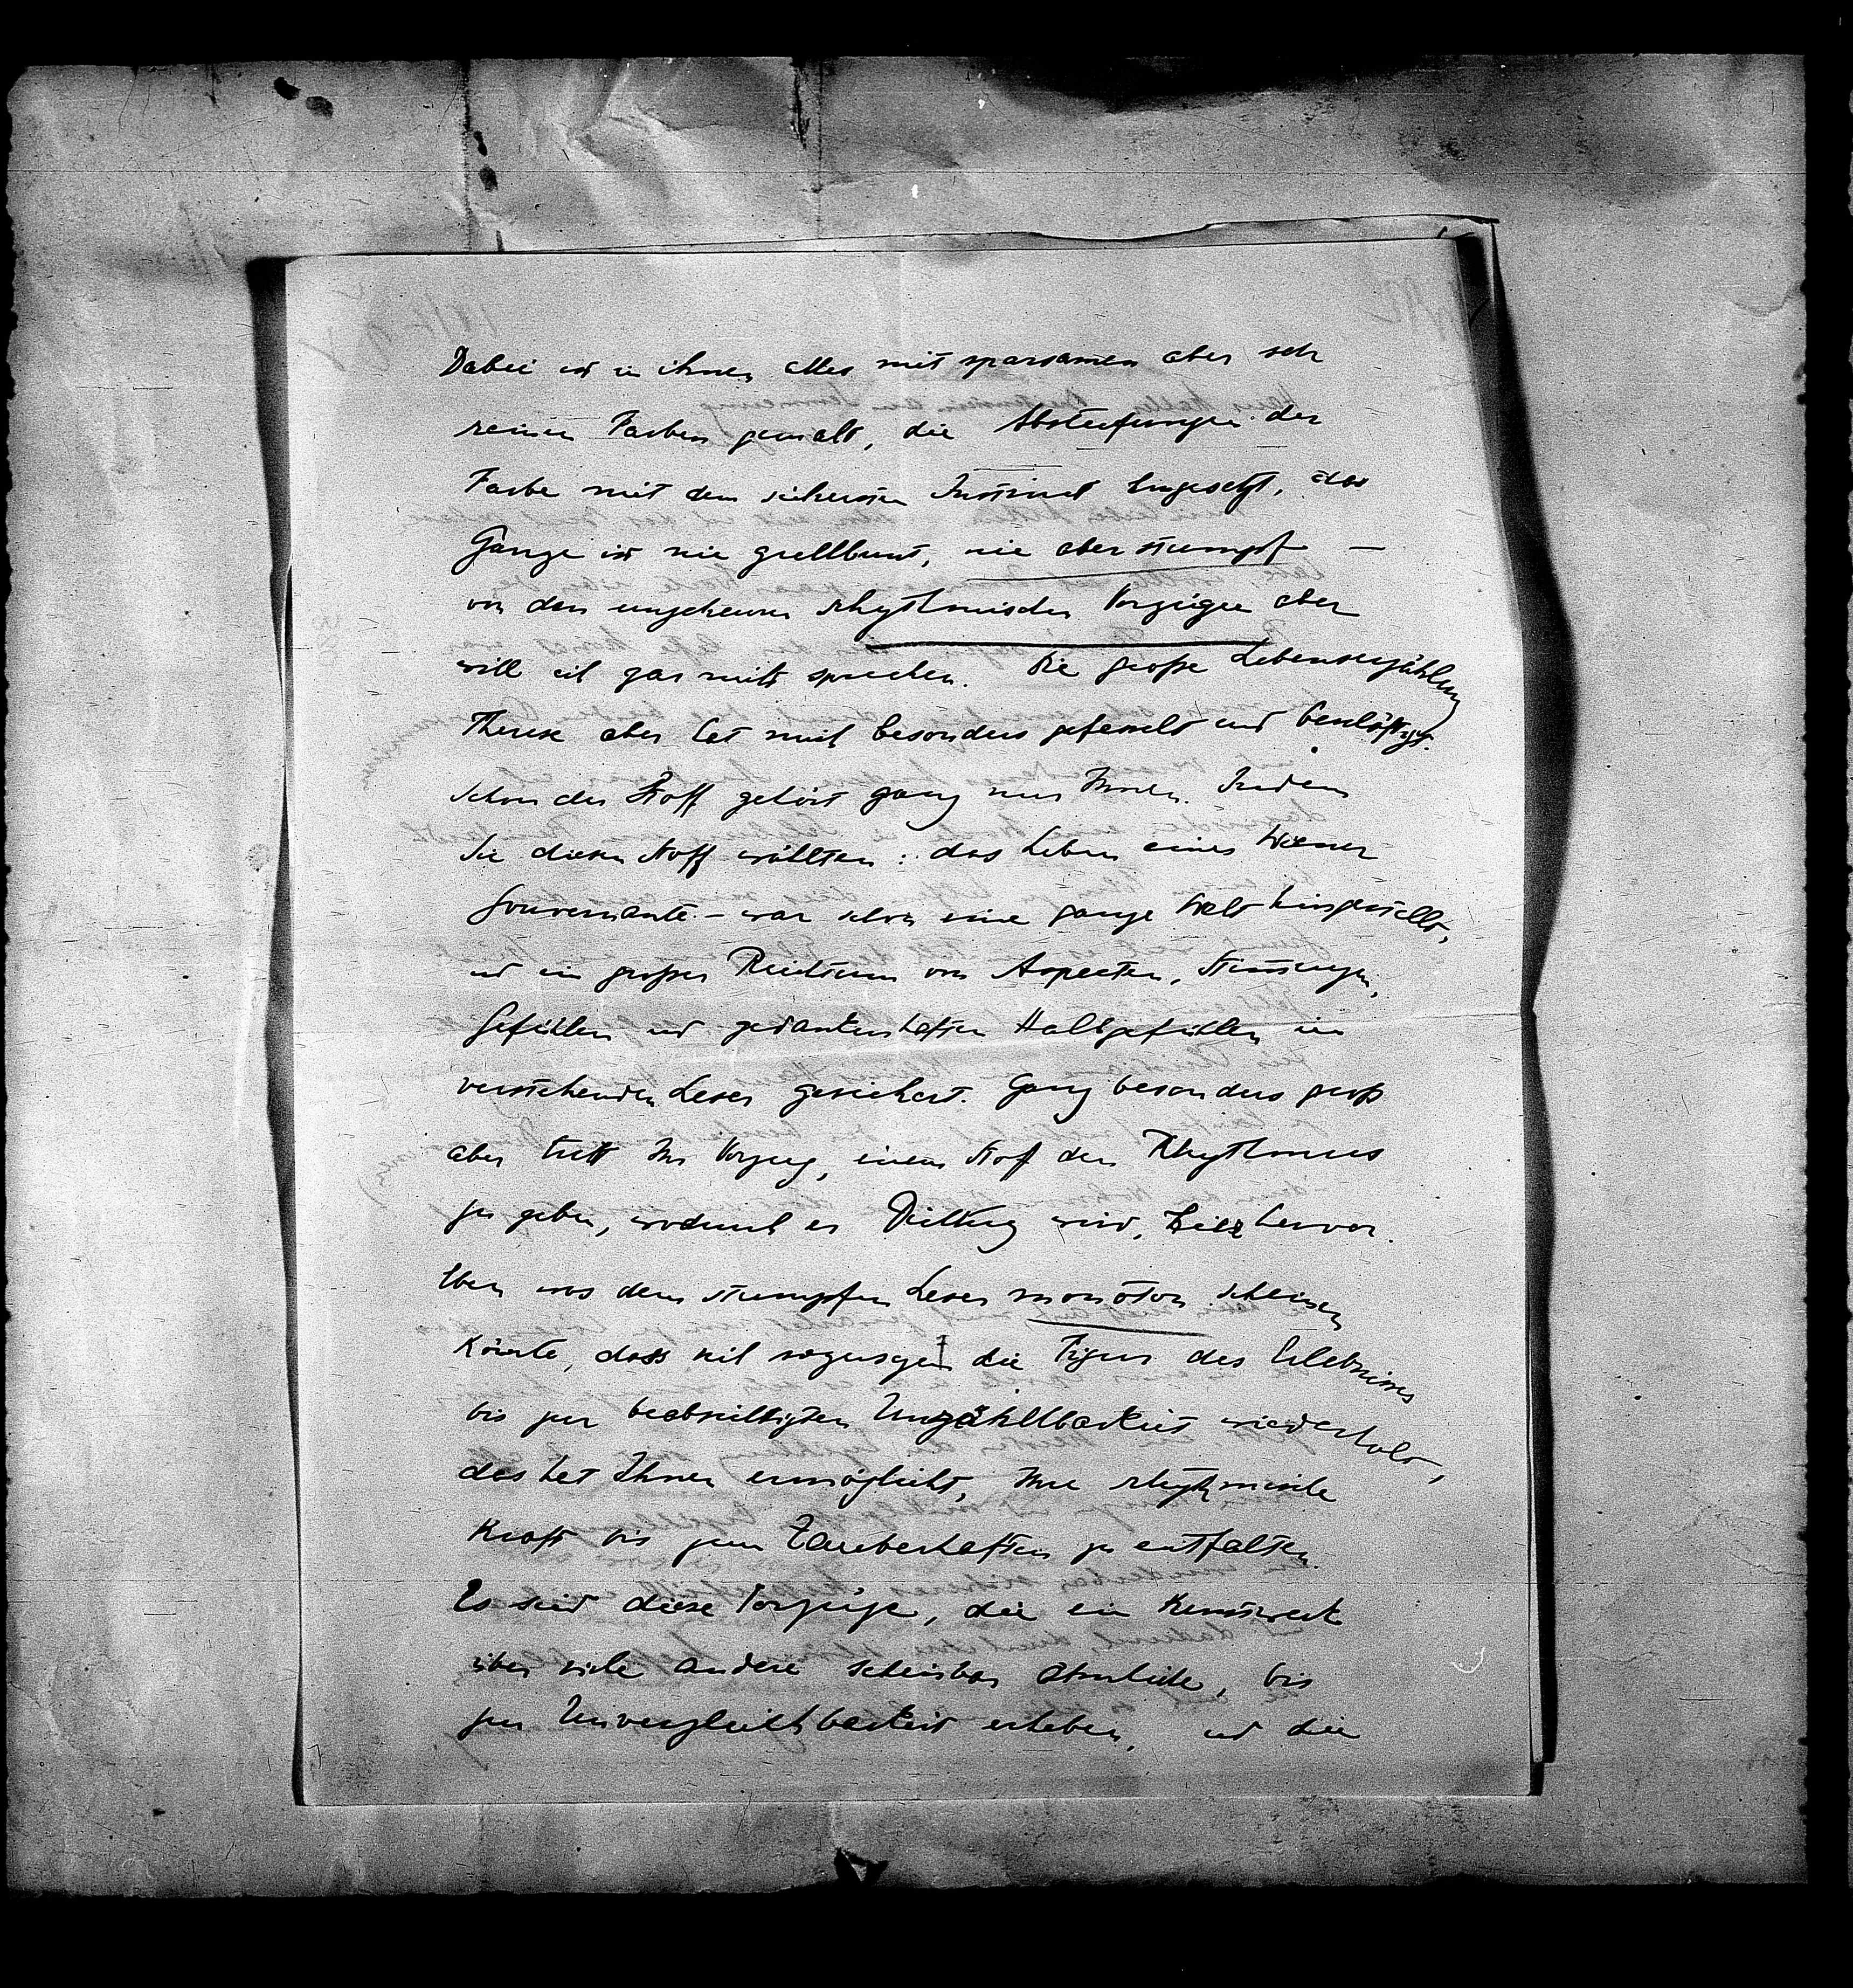 Dabei ist in ihnen alles mit sparsamen aber sehr
reinen Farben gemalt, die Abstufungen der
Farbe mit dem sichersten Instinct hingesetzt, das
Ganze ist nie grellbunt, nie aber stumpf —
von den ungeheuren rhythmischen Vorzügen aber
will ich gar nicht sprechen. Die große Lebenserzählung
Therese aber hat mich besonders gefesselt und beschäftigt.
Schon der Stoff gehört ganz nur Ihnen. Indem
Sie diesen Stoff wählten: das Leben einer Wiener
Gouvernante – war schon eine ganze Welt hingestellt,
und ein großer Reichtum von Aspecten, Stimmungen,
Gefühlen und gedankenhaften Halbgefühlen im
verstehenden Leser gesichert. Ganz besonders groß
aber tritt Ihr Vorzug, einem Stoff den Rhythmus
zu geben, wodurch er Dichtung wird, hier hervor.
Eben was dem stumpfen Leser monoton scheinen
könnte, dass sich sozusagen die Figur des Erlebnisses
bis zur beabsichtigten Unzählbarkeit wiederholt,
das hat Ihnen ermöglicht, Ihre rhythmische
Kraft bis zum Zauberhaften zu entfalten.
Es sind diese Vorzüge, die ein Kunstwerk
über viele andere scheinbar ähnliche, bis
zur Unvergleichbarkeit erheben, und die